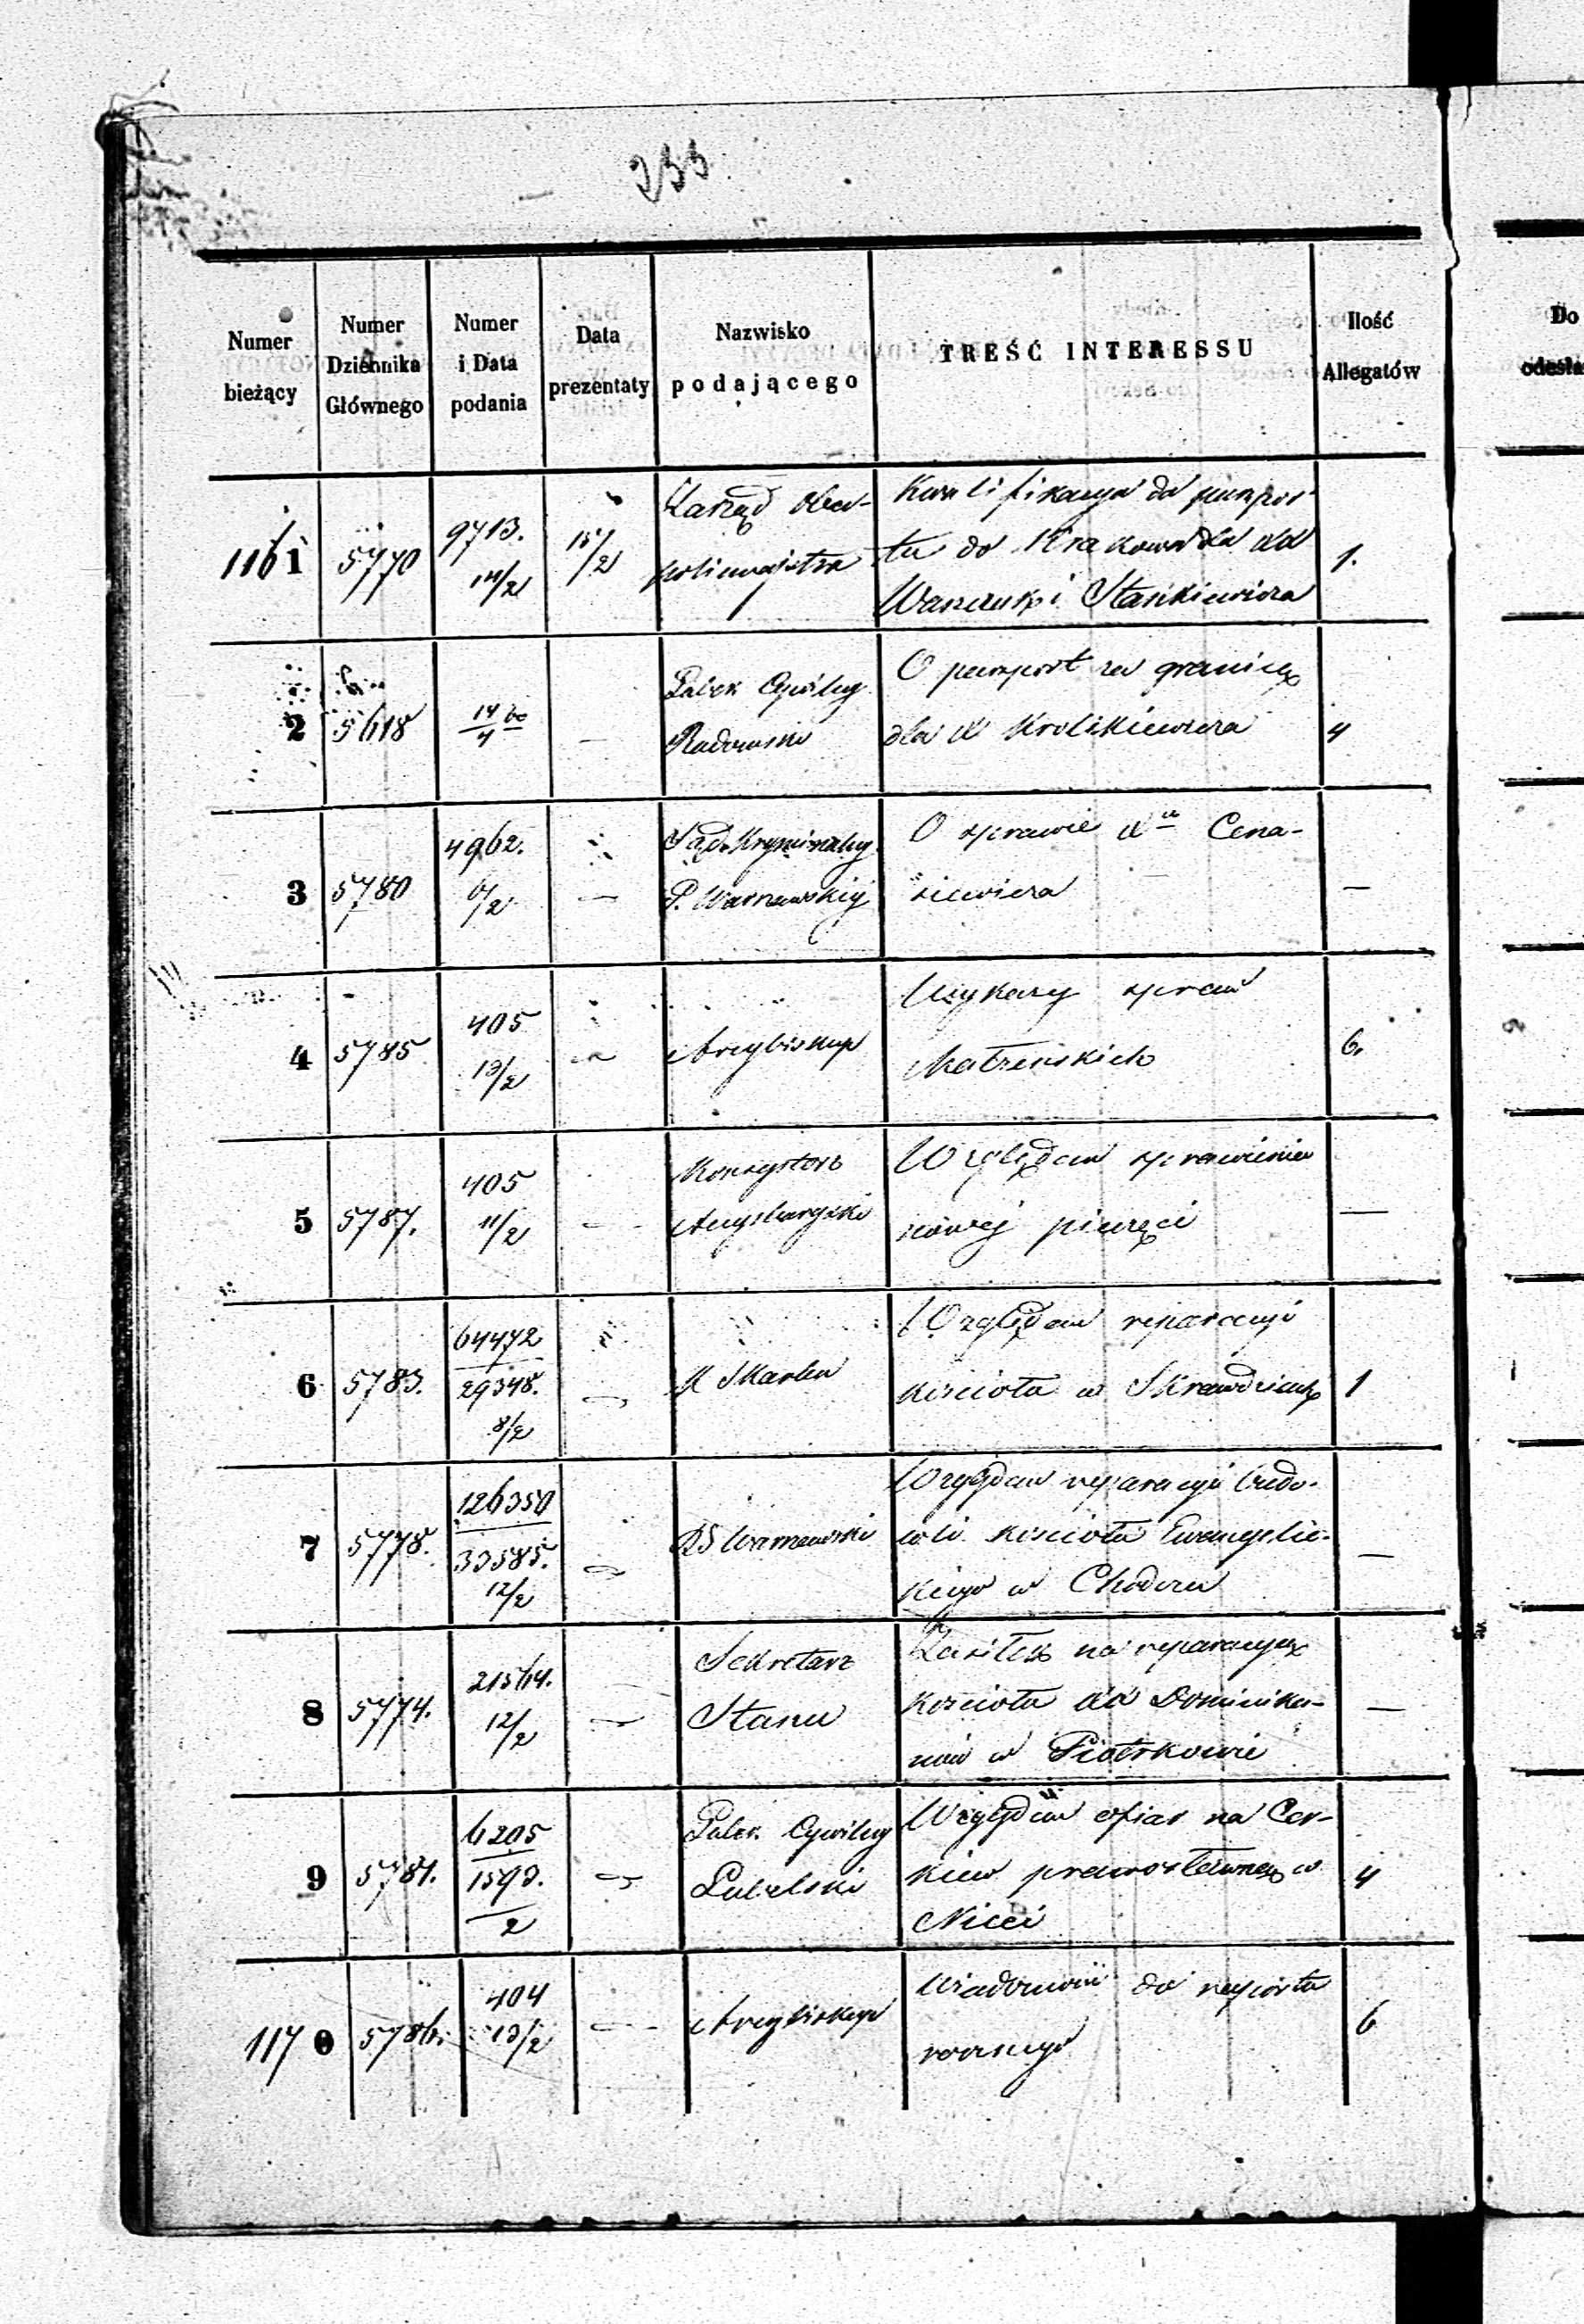 233
Numer bieżący
Numer Dziennika Głównego
Numer i Data podania
Data prezentaty
Nazwisko podającego
TREŚĆ INTERESSU
Ilość Allegatów
Do
1161
5770
9713.
14/2
15/2
Zarząd Ober-
policmajstra
Kwalifikacya do paszpor-
tu do Krakowa dla XX
i Stankiewicza
1.
2
5618
14/4 60
—
Guber Cywilny
Radomski
O paszport za granicę
dla X Krolikiewicza
4
3
5780
4962.
6/2
—
Sąd Kryminalny
G. Warszawskiej
O sprawie Xa Cena-
siewicza
—
4
5785
405
13/2
Arcybiskup
Wykazy spraw
Małżeńskich
6.
5
5787.
405
11/2
—
Konsystorz
Augsburgski
Względem sprawienia
nowej pieczęci
—
6
5783.
64472
29348.
8/2
K Skarbu
Względem reparacyi
kościoła w
1
7
5778.
126350
33585.
12/2
RG Warszawski
Względem reparacyi budo-
wli kościoła Ewangelic-
kiego w Chodczu
—
8
5774.
21564.
12/2
—
Sekretarz
Stanu
Zasiłek na reparacyę
kościoła XX Dominika-
nów w Piotrkowie
—
9
5781.
6205
1593.
2
Guber. Cywilny
Lubelski
Względem ofiar na Cer-
kiew prawosławną w
Nicei
4
1170
5786.
404
13/2
—
Arcybiskup
Wiadomość do raportu
rocznego
6